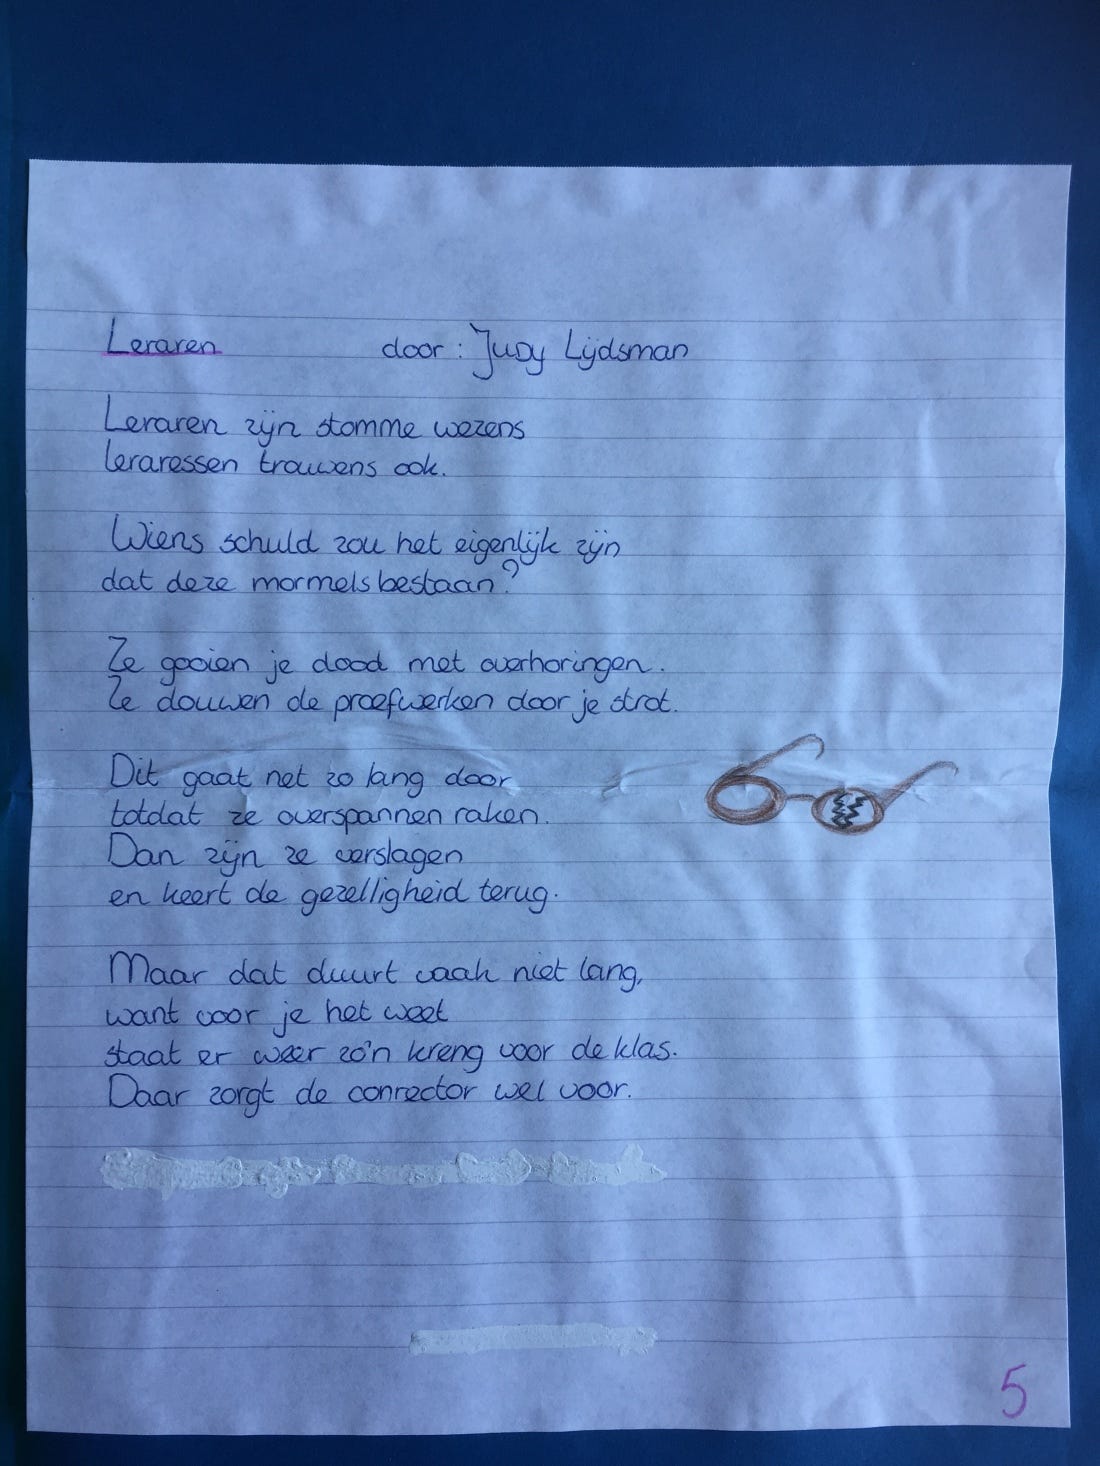 Leraren door: Judy Lijdsman
Leraren zijn stomme wezens
leraressen trouwens ook.
Wiens schuld zou het eigenlijk zijn
dat deze mormels bestaan?
Ze gooien je dood met overhoringen.
Ze douwen de proefwerken door je strot.
Dit gaat net zo lang door
totdat ze overspannen raken.
Dan zijn ze verslagen
en keert de gezelligheid terug.
Maar dat duurt vaak niet lang,
want voor je het weet
staat er weer zo'n kreng voor de klas.
Daar zorgt de conrector wel voor.
5